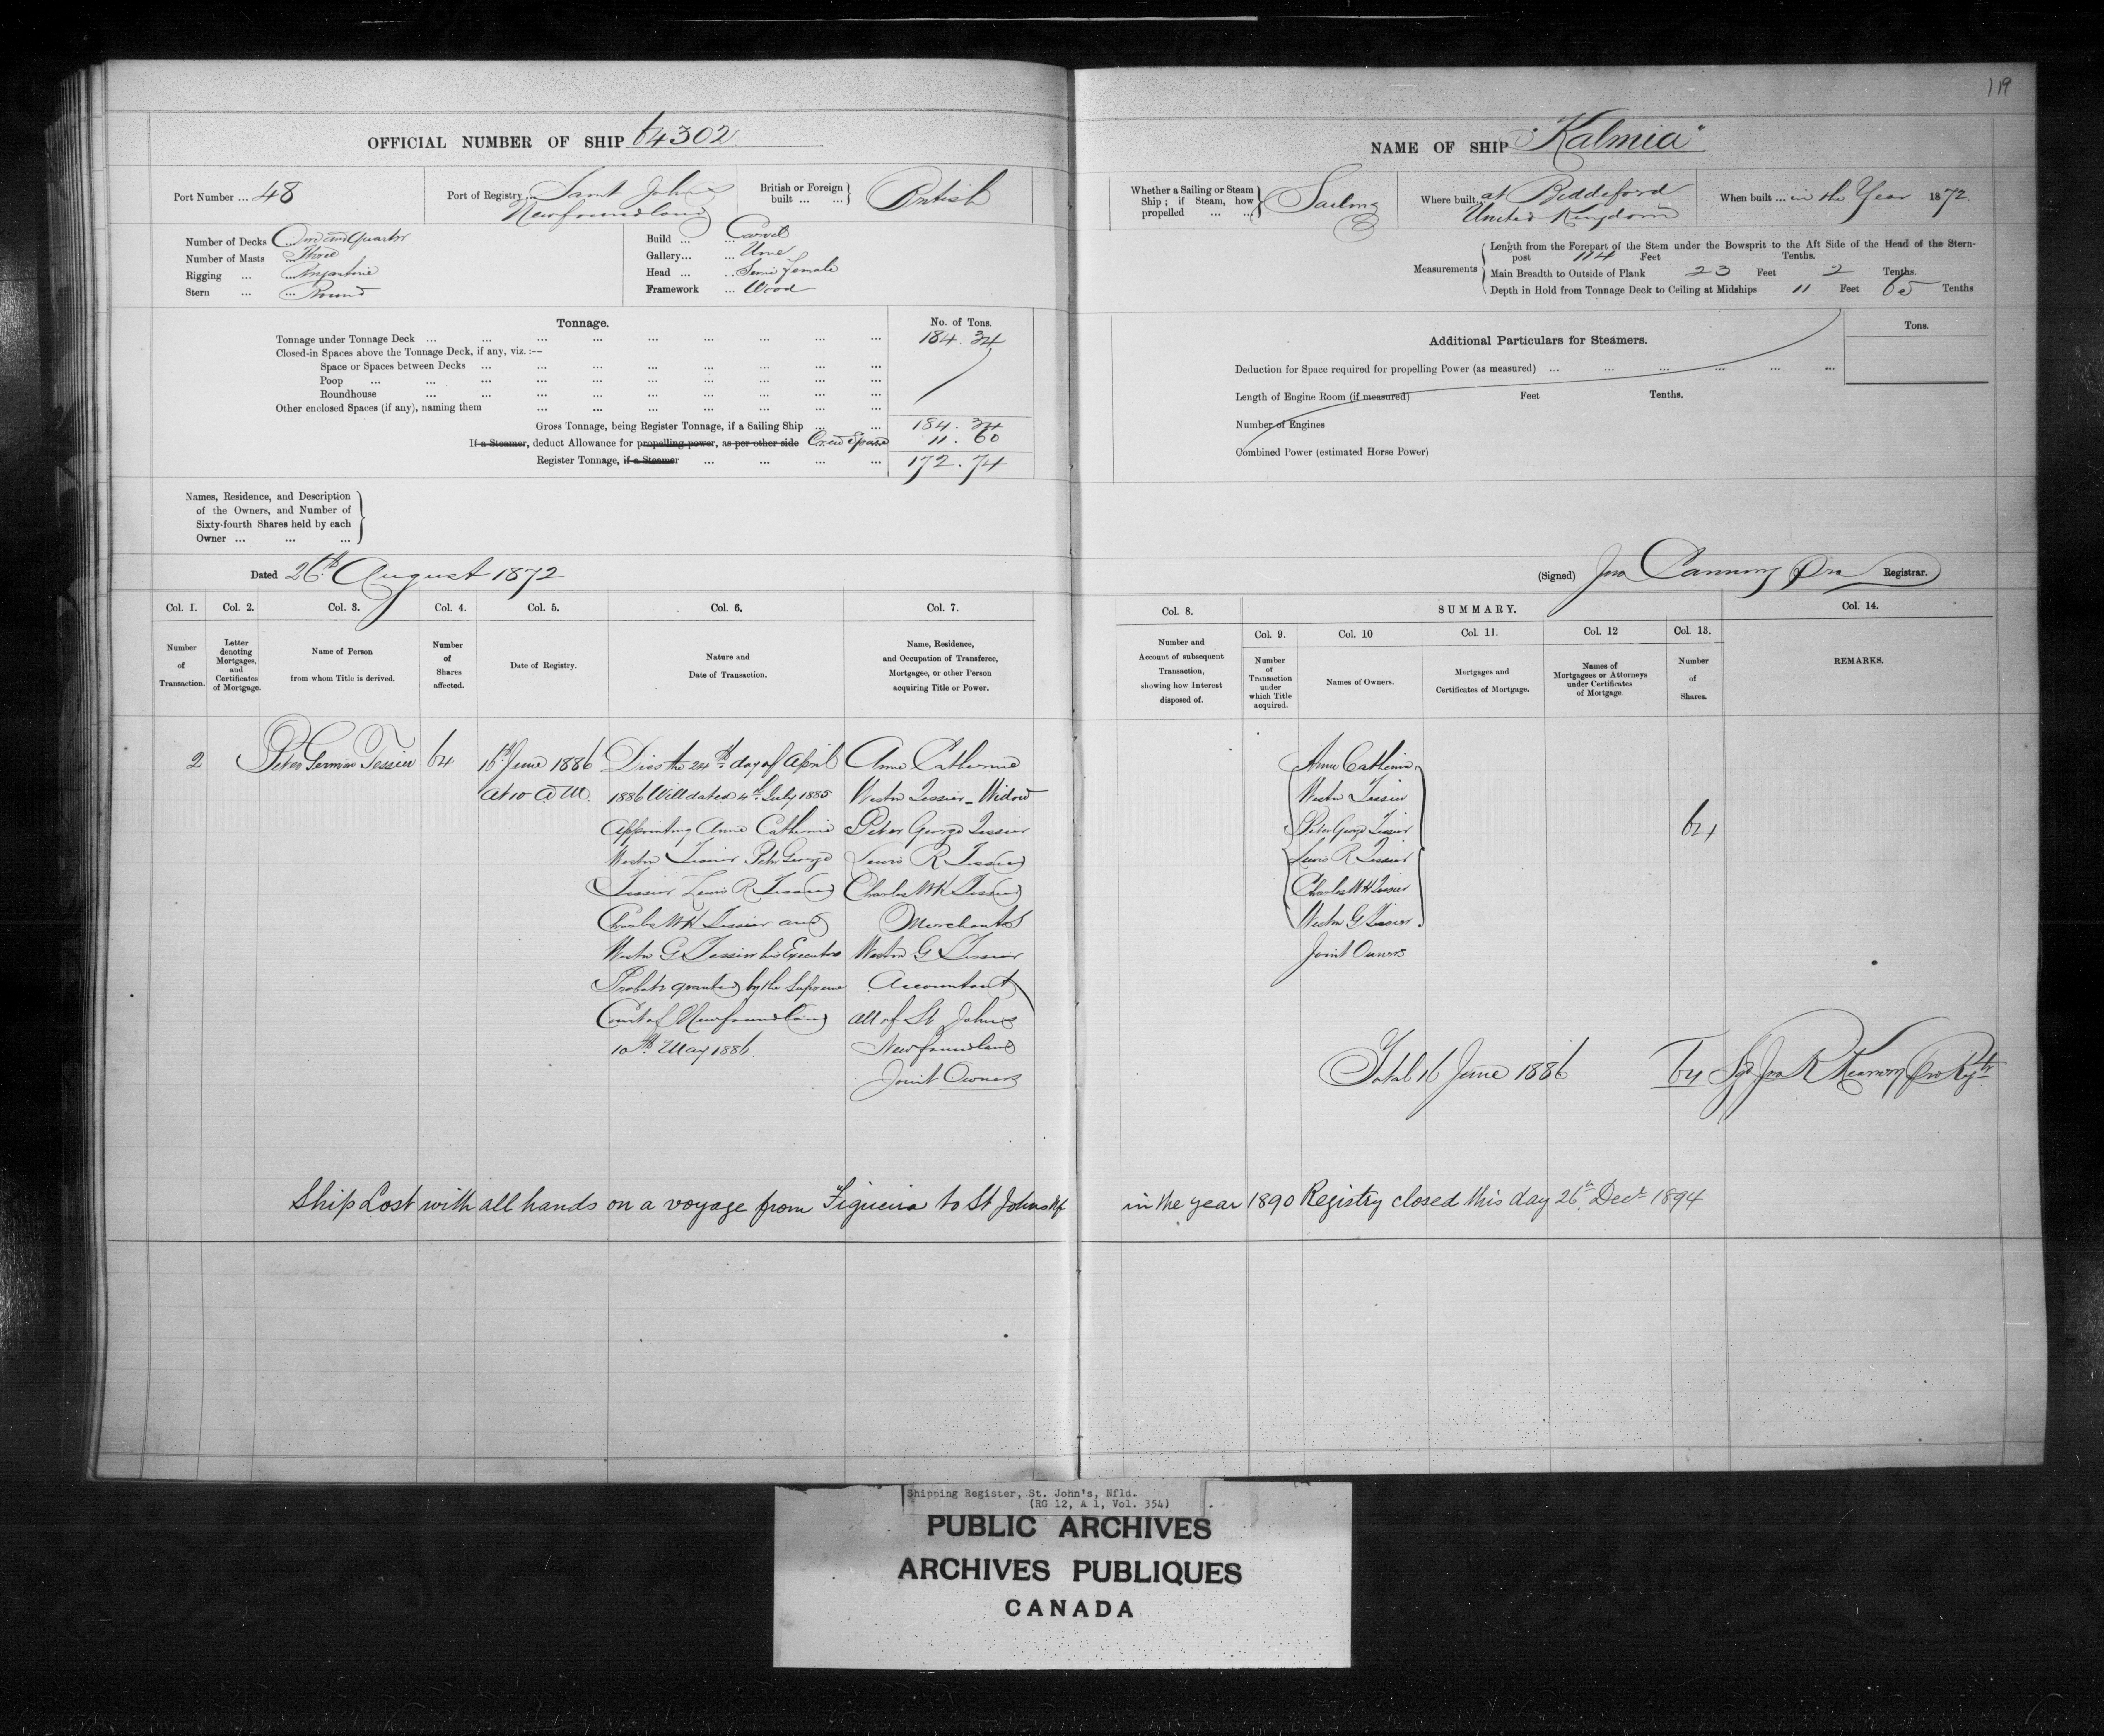 119
OFFICIAL NUMBER OF SHIP 64302
Port Number ... 48
Port of Registry Saint John's
Newfoundland
British or Foreign built ... ... British
Number of Decks ... One and Quarter
Number of Masts ... Three
Rigging ... ... Brigantine
Stern ... ... Round
Build ... ... Carvel
Gallery... ... None
Head ... ... Semi Female
Framework ... Wood
Tonnage.
No. of Tons.
Tonnage under Tonnage Deck ... ... ... ... ... ... ... 184.34
Closed-in Spaces above the Tonnage Deck, if any, viz. :—
Space or Spaces between Decks ... ... ... ... ... ... ...
Poop ... ... ... ... ... ... ... ...
Roundhouse ... ... ... ... ... ... ...
Other enclosed Spaces (if any), naming them ... ... ... ... ... ...
Gross Tonnage, being Register Tonnage, if a Sailing Ship ... ... 184.34
If a Steamer, deduct Allowance for propelling power, as per other side Crew Space 11.60
Register Tonnage, if a Steamer ... ... ... ... 172.74
Names, Residence, and Description
of the Owners, and Number of
Sixty-fourth Shares held by each
Owner ... ... ...
Dated 26th August 1872
Col. 1. Col. 2. Col. 3. Col. 4. Col. 5. Col. 6. Col. 7.
Number of Transaction.
Letter denoting Mortgages, and Certificates of Mortgage.
Name of Person from whom Title is derived.
Number of Shares affected.
Date of Registry.
Nature and Date of Transaction.
Name, Residence, and Occupation of Transferee, Mortgagee, or other Person acquiring Title or Power.
2
Peter German Tessier
64
16th June 1886
At 10 A.M.
Died the 24th day of April
1886 Will dated 4th July 1885
Appointing Anne Catherine
Weston Tessier Peter George
Tessier Lewis R Tessier
Charles W H Tessier and
Weston G Tessier his Executors
Probate granted by the Supreme
Court of Newfoundland
10th May 1886.
Anne Catherine
Weston Tessier - Widow
Peter George Tessier
Lewis R Tessier
Charles W H Tessier
Merchants
Weston G Tessier
Accountant
All of St Johns
Newfoundland
Joint Owners
Ship Lost with all hands on a voyage from Figueira to St Johns Nf
NAME OF SHIP "Kalmia"
Whether a Sailing or Steam Ship ; if Steam, how propelled ... ... Sailing
Where built at Biddeford
United Kingdom
When built ... in the Year 1872.
Measurements
Length from the Forepart of the Stem under the Bowsprit to the Aft Side of the Head of the Stern-
post 114 Feet Tenths.
Main Breadth to Outside of Plank 23 Feet 2 Tenths.
Depth in Hold from Tonnage Deck to Ceiling at Midships 11 Feet 65 Tenths
Additional Particulars for Steamers.
Tons.
Deduction for Space required for propelling Power (as measured) ... ... ... ... ... ...
Length of Engine Room (if measured) Feet Tenths.
Number of Engines
Combined Power (estimated Horse Power)
(Signed) Jno Canning Pro Registrar.
Col. 8. SUMMARY. Col. 14.
Col. 9. Col. 10 Col. 11. Col. 12 Col. 13.
Number and Account of subsequent Transaction, showing how Interest disposed of.
Number of Transaction under which Title acquired.
Names of Owners.
Mortgages and Certificates of Mortgage.
Names of Mortgagees or Attorneys under Certificates of Mortgage
Number of Shares.
REMARKS.
Anne Catherine
Weston Tessier
Peter George Tessier
Lewis R Tessier
Charles W H Tessier
Weston G Tessier
Joint Owners
64
Total 16 June 1886
64 Sgd Jno R Kearney Pro Regtr
in the year 1890 Registry closed this day 26th Decr 1894
Shipping Register, St. John's, Nfld.
(RG 12, A 1, Vol. 354)
PUBLIC ARCHIVES
ARCHIVES PUBLIQUES
CANADA